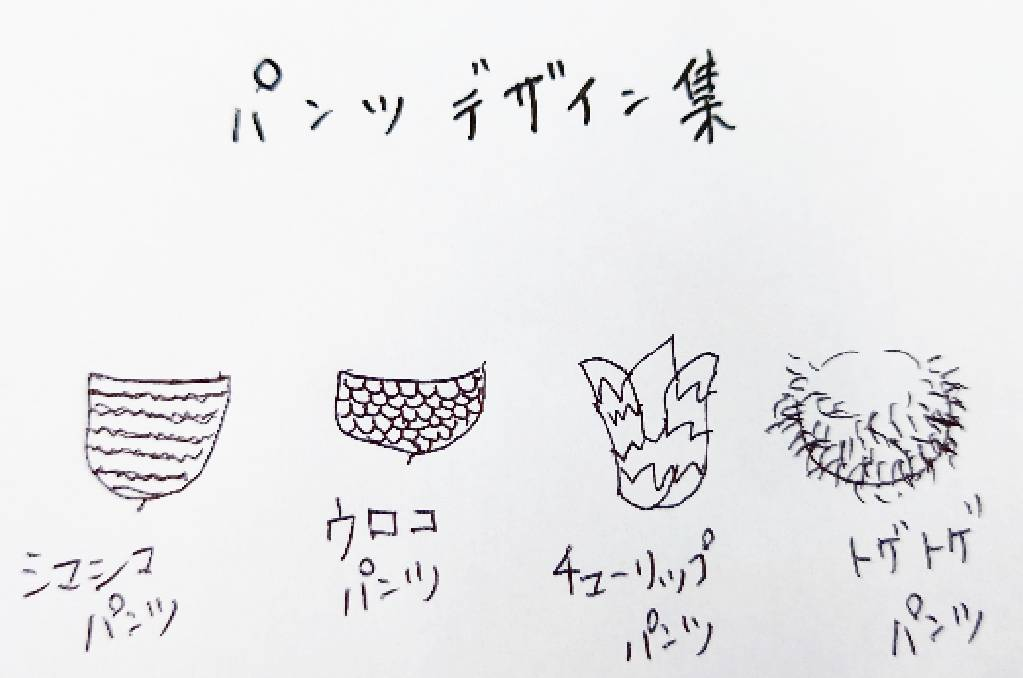 パンツデザイン集
シマシマ
パンツ
ウロコ
パンツ
チューリップ
パンツ
トゲトゲ
パンツ